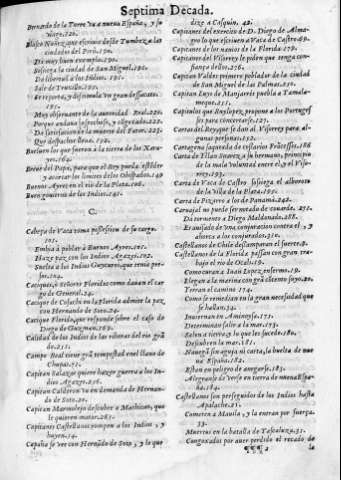 Septima Decada.
Bernardo de la Torre va a nueva España, y su
viage.120.
Blasco Nuñez, que escrivio desde Tumbez a las
ciudades del Perù.190.
Da muy buen exemplo.190.
Sossiega la ciudad de San Miguel.190.
Da libertad a los Indios.
Sale de Truxillo.190.
Se reporta, y dissimula un gran desacato.
191.
Muy observante de la autoridad Real.
Porque andava sospechoso, y alterado.222.
Da satisfacion de la muerte del Fator.223.
Que despachos lleva.190.
Burlaron los que fueron a la tierra de los Xarayes.164.
Breve del Papa, para que el Rey pueda estender
y acortar los limites de los Obispados.149
Buenos Ayres en el rio de la Plata.106.
Buen govierno de los Indios.141.
C.
Cabeça de Vaca toma possession de su cargo.
101.
Embia a poblar a Buenos Ayres.101.
Haze paz con los Indios Agazes.102.
Suelta a los Indios Guycurues, que tenia presos.104.
Caciques, o Señores Floridas como davan el cargo
de General.24.
Cacique de Cofachi en la Florida admite la paz
con Hernando de Soto.24.
Cacique Florida, que responde sobre el caso de
Diego de Guzman.269.
Calidad de los Indios de las riberas del rio grande.251.
Campo Real viene grã tempestad en el llano de
Chupas.71.
Capitan Salazar quiere hazer guerra a los Indios
Agazes.256.
Capitan Calderon va en demanda de Hernando
de Soto.20.
Capitan Marmolejo descubre a Machicao, que
le quieren matar.263.
Capitanes Castellanos rompen a los Indios, y
huyen.14.
Capasi se ven con Hernãdo de Soto, y lo que
dize a Casquin. 42.
Capitanes del exercito de D. Diego de Almagro
lo que escriven a Vaca de Castro.69.
Capitanes de los navios de la Florida.179.
Capitanes del Visorrey le piden que tenga confiança
dellos.276.
Capitan Valdes primero poblador de la ciudad
de San Miguel de las Palmas.250.
Capitan Luys de Manjarès puebla a Tamalameque.251.
Capitulos que Ruylopez propone a los Portugueses
para concertarse.127.
Cartas del Rey, que se dan al Visorrey para algunas
personas.152.
Cartagena saqueda de cossarios Franceses.188
Carta de Illan Suarez, a su hermano, principio
de la mala voluntad entre el, y el Visorrey.193.
Carta de Vaca de Castro sossiega el alboroto
de la Villa de la Plata.195.
Carta de Pizarro a los de Panamà.242.
Carvajal no puede ser notado de covarde. 271.
Da tormento a Diego Maldonado.288.
Es avisado de una conjuracion contra el, y
ahorca a los conjurados.310.
Castellanos de Chile desamparan el fuerte.9.
Castellanos de la Florida passan con gran trabajo
el rio de Ocali.19.
Como curan a Iuan Lopez enfermo.19.
Llegan a la marina con grã contento suyo.20.
Yerran el camino.174.
Como se remedian en la gran necessidad que
se hallan.34.
Invernan en Aminoya.171.
Determinan salir a la mar.173.
Salen a tierra, y lo que les sucede.180.
Descubren la mar.181.
Navegã sin aguja ni carta, la buelta de nueva
España.182.
Estan en peligro de anegarse.183.
Alegranse de verse en tierra de nueva España.184.
Castellanos son perseguidos de los Indios hasta
Apalache.21.
Cometen a Mauila, y la entran por fuerça.
33.
Muertos en la batalla de Tascaluza.31.
Congoxados por aver perdido el recado de
¶¶¶ 2